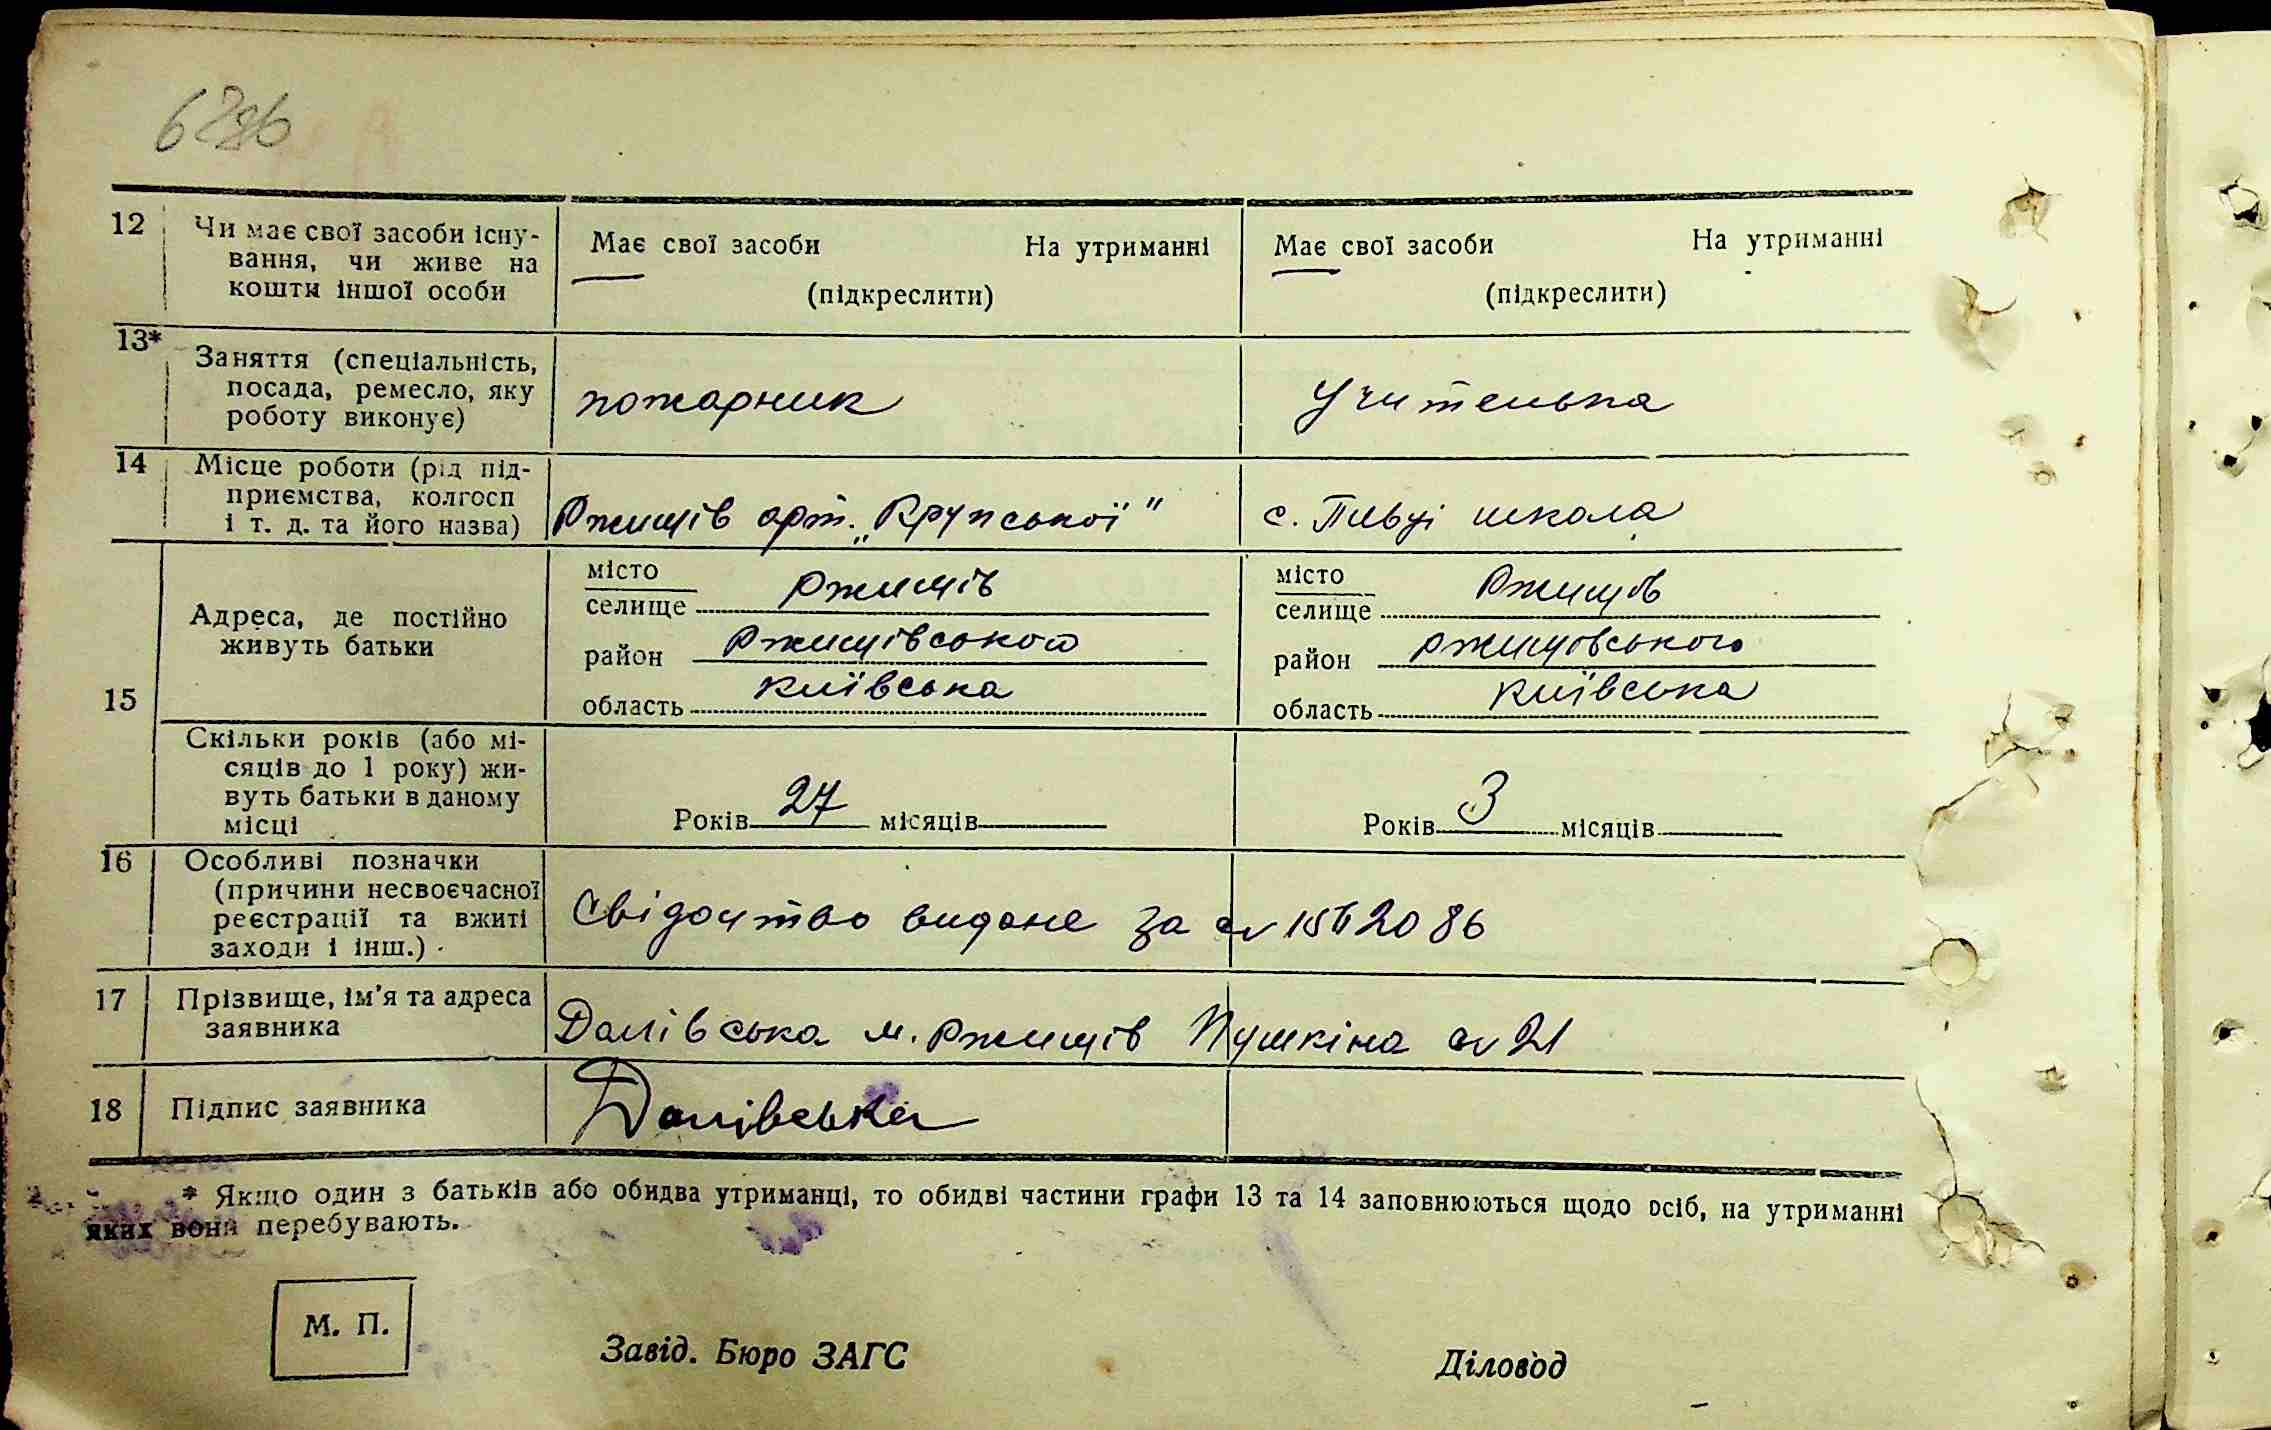 12 Чи має свої засоби існу-
вання, чи живе на
кошти іншої особи
Має свої засоби На утриманні
(підкреслити)
Має свої засоби На утриманні
(підкреслити)
13* Заняття (спеціальність,
посада, ремесло, яку
роботу виконує)
пожарник
Учителька
14 Місце роботи (рід під-
приємства, колгосп
і т. д. та його назва)
Ржищів арт. „Крупської"
с. Півці школа
15
Адреса, де постійно
живуть батьки
місто
селище Ржищів
район Ржищівського
область Київська
місто
селище Ржищів
район Ржищівського
область Київська
Скільки років (або мі-
сяців до 1 року) жи-
вуть батьки в даному
місці
Років 27 місяців
Років 3 місяців
16 Особливі позначки
(причини несвоєчасної
реєстрації та вжиті
заходи і інш.)
Свідоцтво видане за №
17 Прізвище, ім'я та адреса
заявника
Далівська м. Ржищів Пушкіна № 21
18 Підпис заявника
Далівська
* Якщо один з батьків або обидва утриманці, то обидві частини графи 13 та 14 заповнюються щодо осіб, на утриманні
яких вони перебувають.
М. П.
Завід. Бюро ЗАГС
Діловод